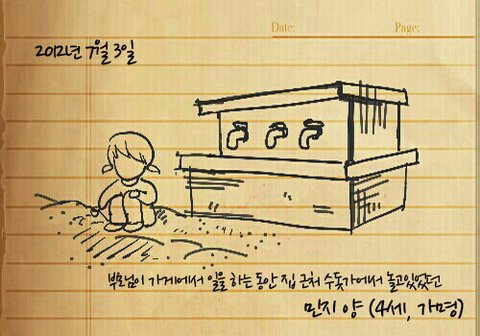 Date: Page:
2012년 7월 3일
부모님이 가게에서 일을 하는 동안 집 근처 수돗가에서 놀고있었던
민지 양 (4세, 가명)